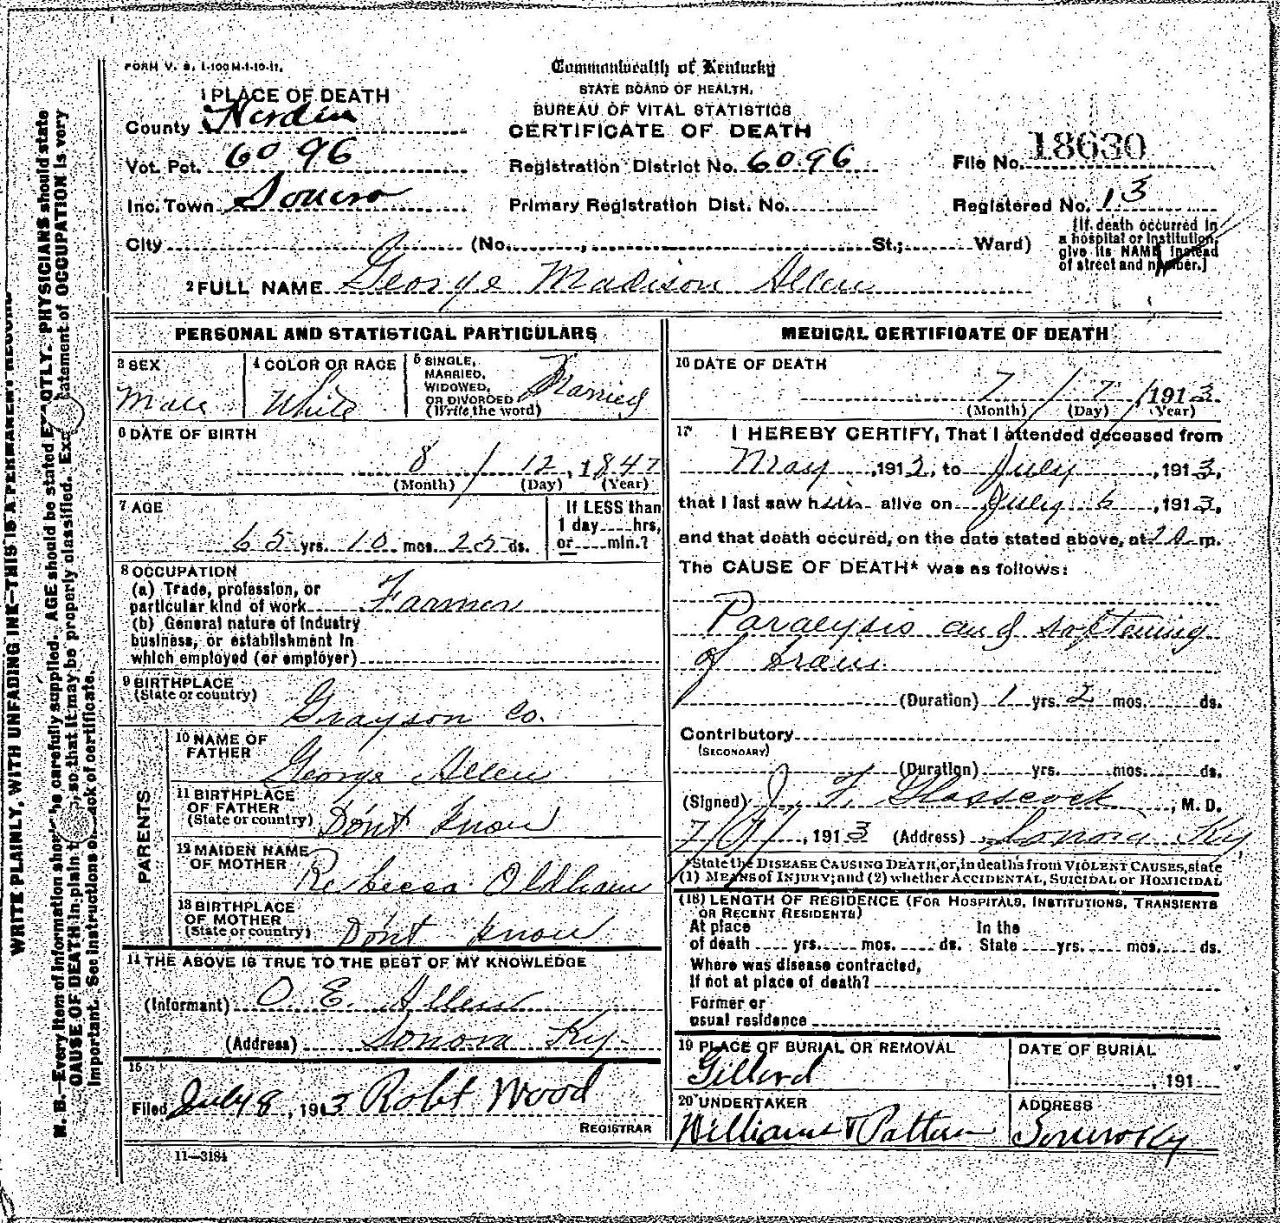 FORM V. S. 1-100M-1-10-11.
Commonwealth of Kentucky
STATE BOARD OF HEALTH.
BUREAU OF VITAL STATISTICS
CERTIFICATE OF DEATH
1 PLACE OF DEATH
County Hardin
Vot. Pct. 6096
Registration District No. 6096
File No. 18630
Inc. Town Sonora
Primary Registration Dist. No.
Registered No. 13
City (No. , St.; Ward)
[If death occurred in
a hospital or institution,
give its NAME instead
of street and number.]
2 FULL NAME George Madison Allen
PERSONAL AND STATISTICAL PARTICULARS
3 SEX
Male
4 COLOR OR RACE
White
5 SINGLE,
MARRIED,
WIDOWED,
OR DIVORCED
(Write the word)
Married
6 DATE OF BIRTH
8 / 12, 1847
(Month) (Day) (Year)
7 AGE
65 yrs. 10 mos. 25 ds.
If LESS than
1 day hrs,
or min.?
8 OCCUPATION
(a) Trade, profession, or
particular kind of work Farmer
(b) General nature of Industry
business, or establishment in
which employed (or employer)
9 BIRTHPLACE
(State or country)
Grayson Co.
PARENTS
10 NAME OF
FATHER
George Allen
11 BIRTHPLACE
OF FATHER
(State or country) Don't Know
12 MAIDEN NAME
OF MOTHER
Rebecca Oldham
13 BIRTHPLACE
OF MOTHER
(State or country) Don't Know
14 THE ABOVE IS TRUE TO THE BEST OF MY KNOWLEDGE
(Informant) O. E. Allen
(Address) Sonora Ky.
15
Filed July 8, 1913 Robt Wood
REGISTRAR
11-3184
MEDICAL CERTIFICATE OF DEATH
16 DATE OF DEATH
7 / 7 / 1913
(Month) (Day) (Year)
17 I HEREBY CERTIFY, That I attended deceased from
May, 1913, to July, 1913,
that I last saw him alive on July 6, 1913,
and that death occured, on the date stated above, at m.
The CAUSE OF DEATH* was as follows:
Paralysis and softening
of brain
(Duration) 1 yrs. 2 mos. ds.
Contributory
(SECONDARY)
(Duration) yrs. mos. ds.
(Signed) J. F. Glasscock, M. D.
7/7/, 1913 (Address) Sonora Ky
*State the DISEASE CAUSING DEATH, or, in deaths from VIOLENT CAUSES, state
(1) MEANS of INJURY; and (2) whether ACCIDENTAL, SUICIDAL or HOMICIDAL
(18) LENGTH OF RESIDENCE (FOR HOSPITALS, INSTITUTIONS, TRANSIENTS
OR RECENT RESIDENTS)
At place
of death yrs. mos. ds.
In the
State yrs. mos. ds.
Where was disease contracted,
If not at place of death?
Former or
usual residence
19 PLACE OF BURIAL OR REMOVAL
DATE OF BURIAL
, 191
20 UNDERTAKER
Williams & Patterson
ADDRESS
Sonora Ky
WRITE PLAINLY, WITH UNFADING INK—THIS IS A PERMANENT RECORD
N. B.—Every item of information should be carefully supplied. AGE should be stated EXACTLY. PHYSICIANS should state
CAUSE OF DEATH in plain so that it may be properly classified. statement of OCCUPATION is very
important. See instructions on back of certificate.